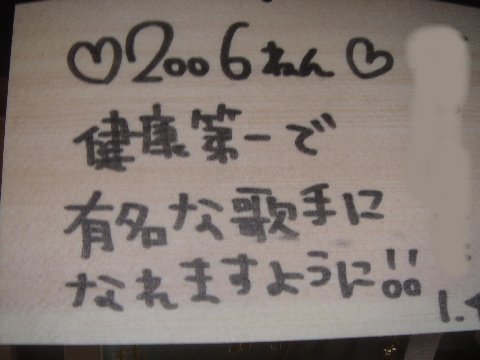 ♡2006ねん♡
健康第一で
有名な歌手に
なれますように!!
1.